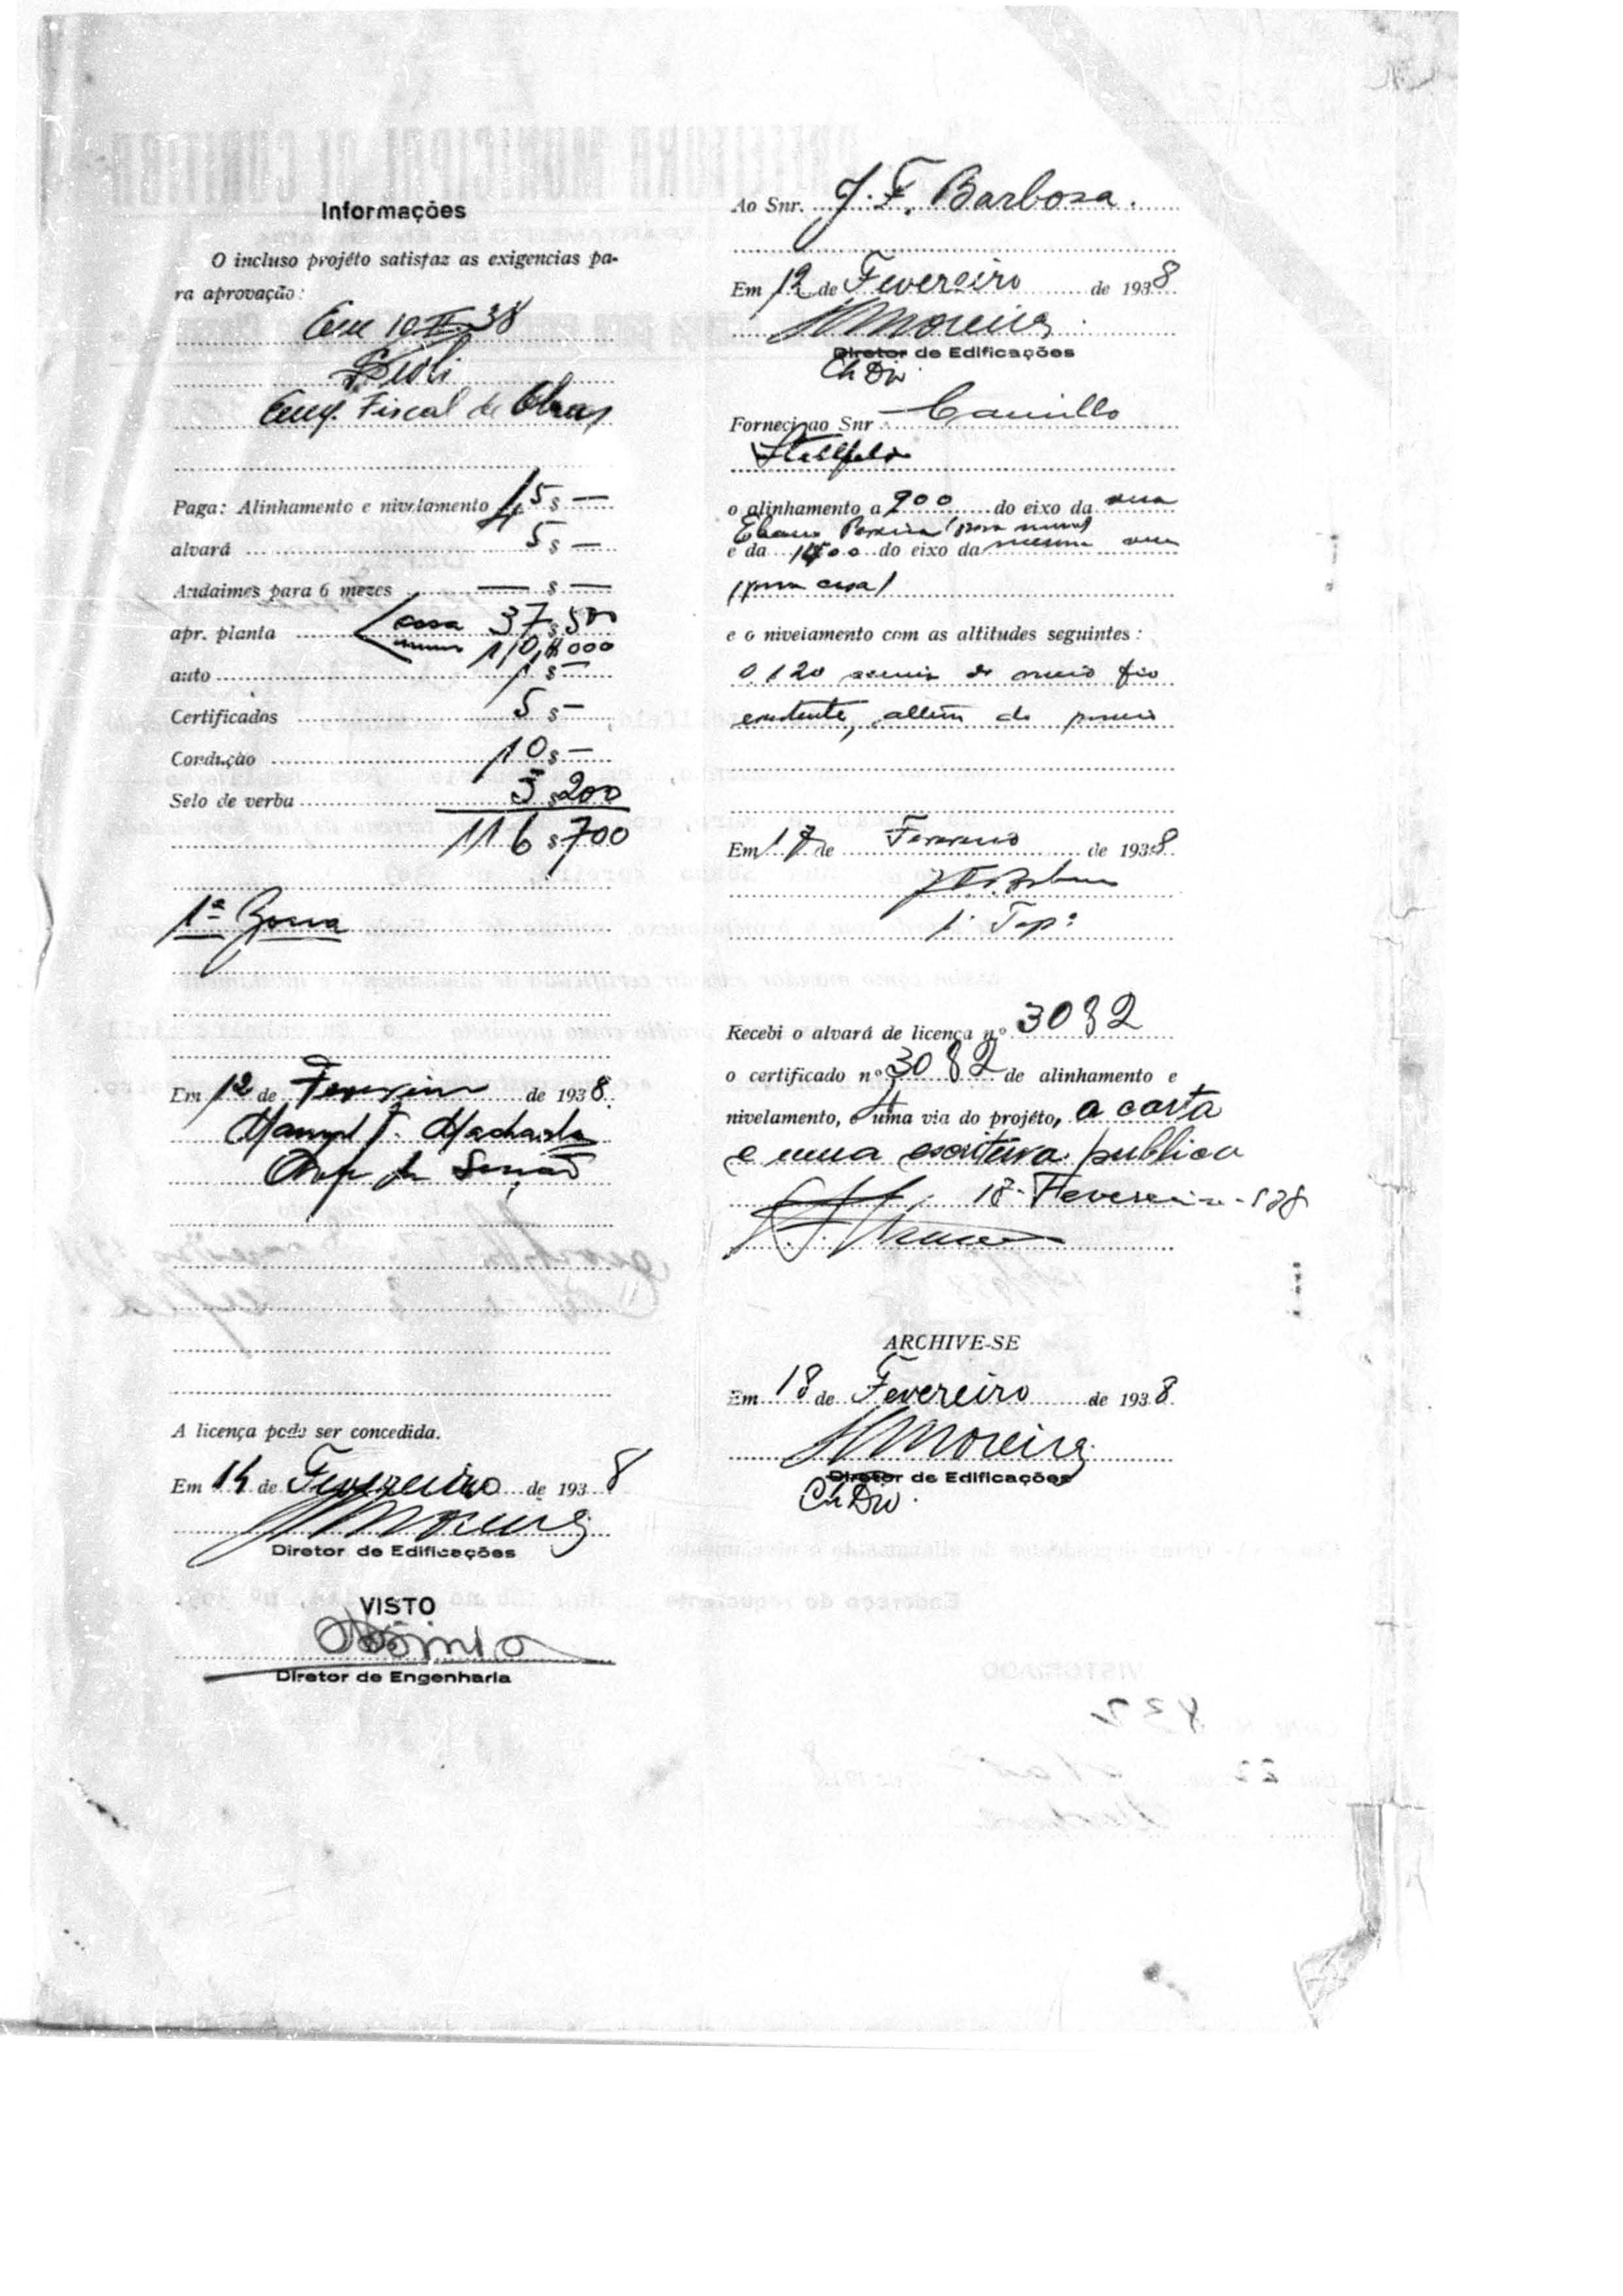 Informações
O incluso projéto satisfaz as exigencias pa-
ra aprovação:
Em 10 II 38
Eng. Fiscal de Obras
Paga: Alinhamento e nivelamento 45 $ —
alvará 5 $ —
Andaimes para 6 mezes — $ —
apr. planta casa 37 $ 500
muro 10,$000
auto 1 $ —
Certificados 5 $ —
Condução 10 $ —
Selo de verba 3 $ 200
116 $ 700
1ª Zona
Em 12 de Fevereiro de 1938.
Manuel F. Machado
Chefe da Secção
A licença pode ser concedida.
Em 14 de Fevereiro de 1938
Moreira
Diretor de Edificações
VISTO
Diretor de Engenharia
Ao Snr. J. F. Barbosa.
Em 12 de Fevereiro de 1938
Moreira
Diretor de Edificações
Ch Div.
Forneci ao Snr. Camillo
Stellfeld
o alinhamento a 900 do eixo da rua
Ebano Pereira (para muro)
e da 1400 do eixo da mesma rua
(para casa)
e o nivelamento com as altitudes seguintes:
0,120 acima do meio fio
existente, allem do passeio
Em 17 de Fevereiro de 1938
J. F. Barbosa
1. Topº
Recebi o alvará de licença nº 3082
o certificado nº 3082 de alinhamento e
nivelamento, e uma via do projéto, a carta
e uma escritura publica
18 - Fevereiro - 938
ARCHIVE-SE
Em 18 de Fevereiro de 1938.
Moreira
Diretor de Edificações
Ch Div.